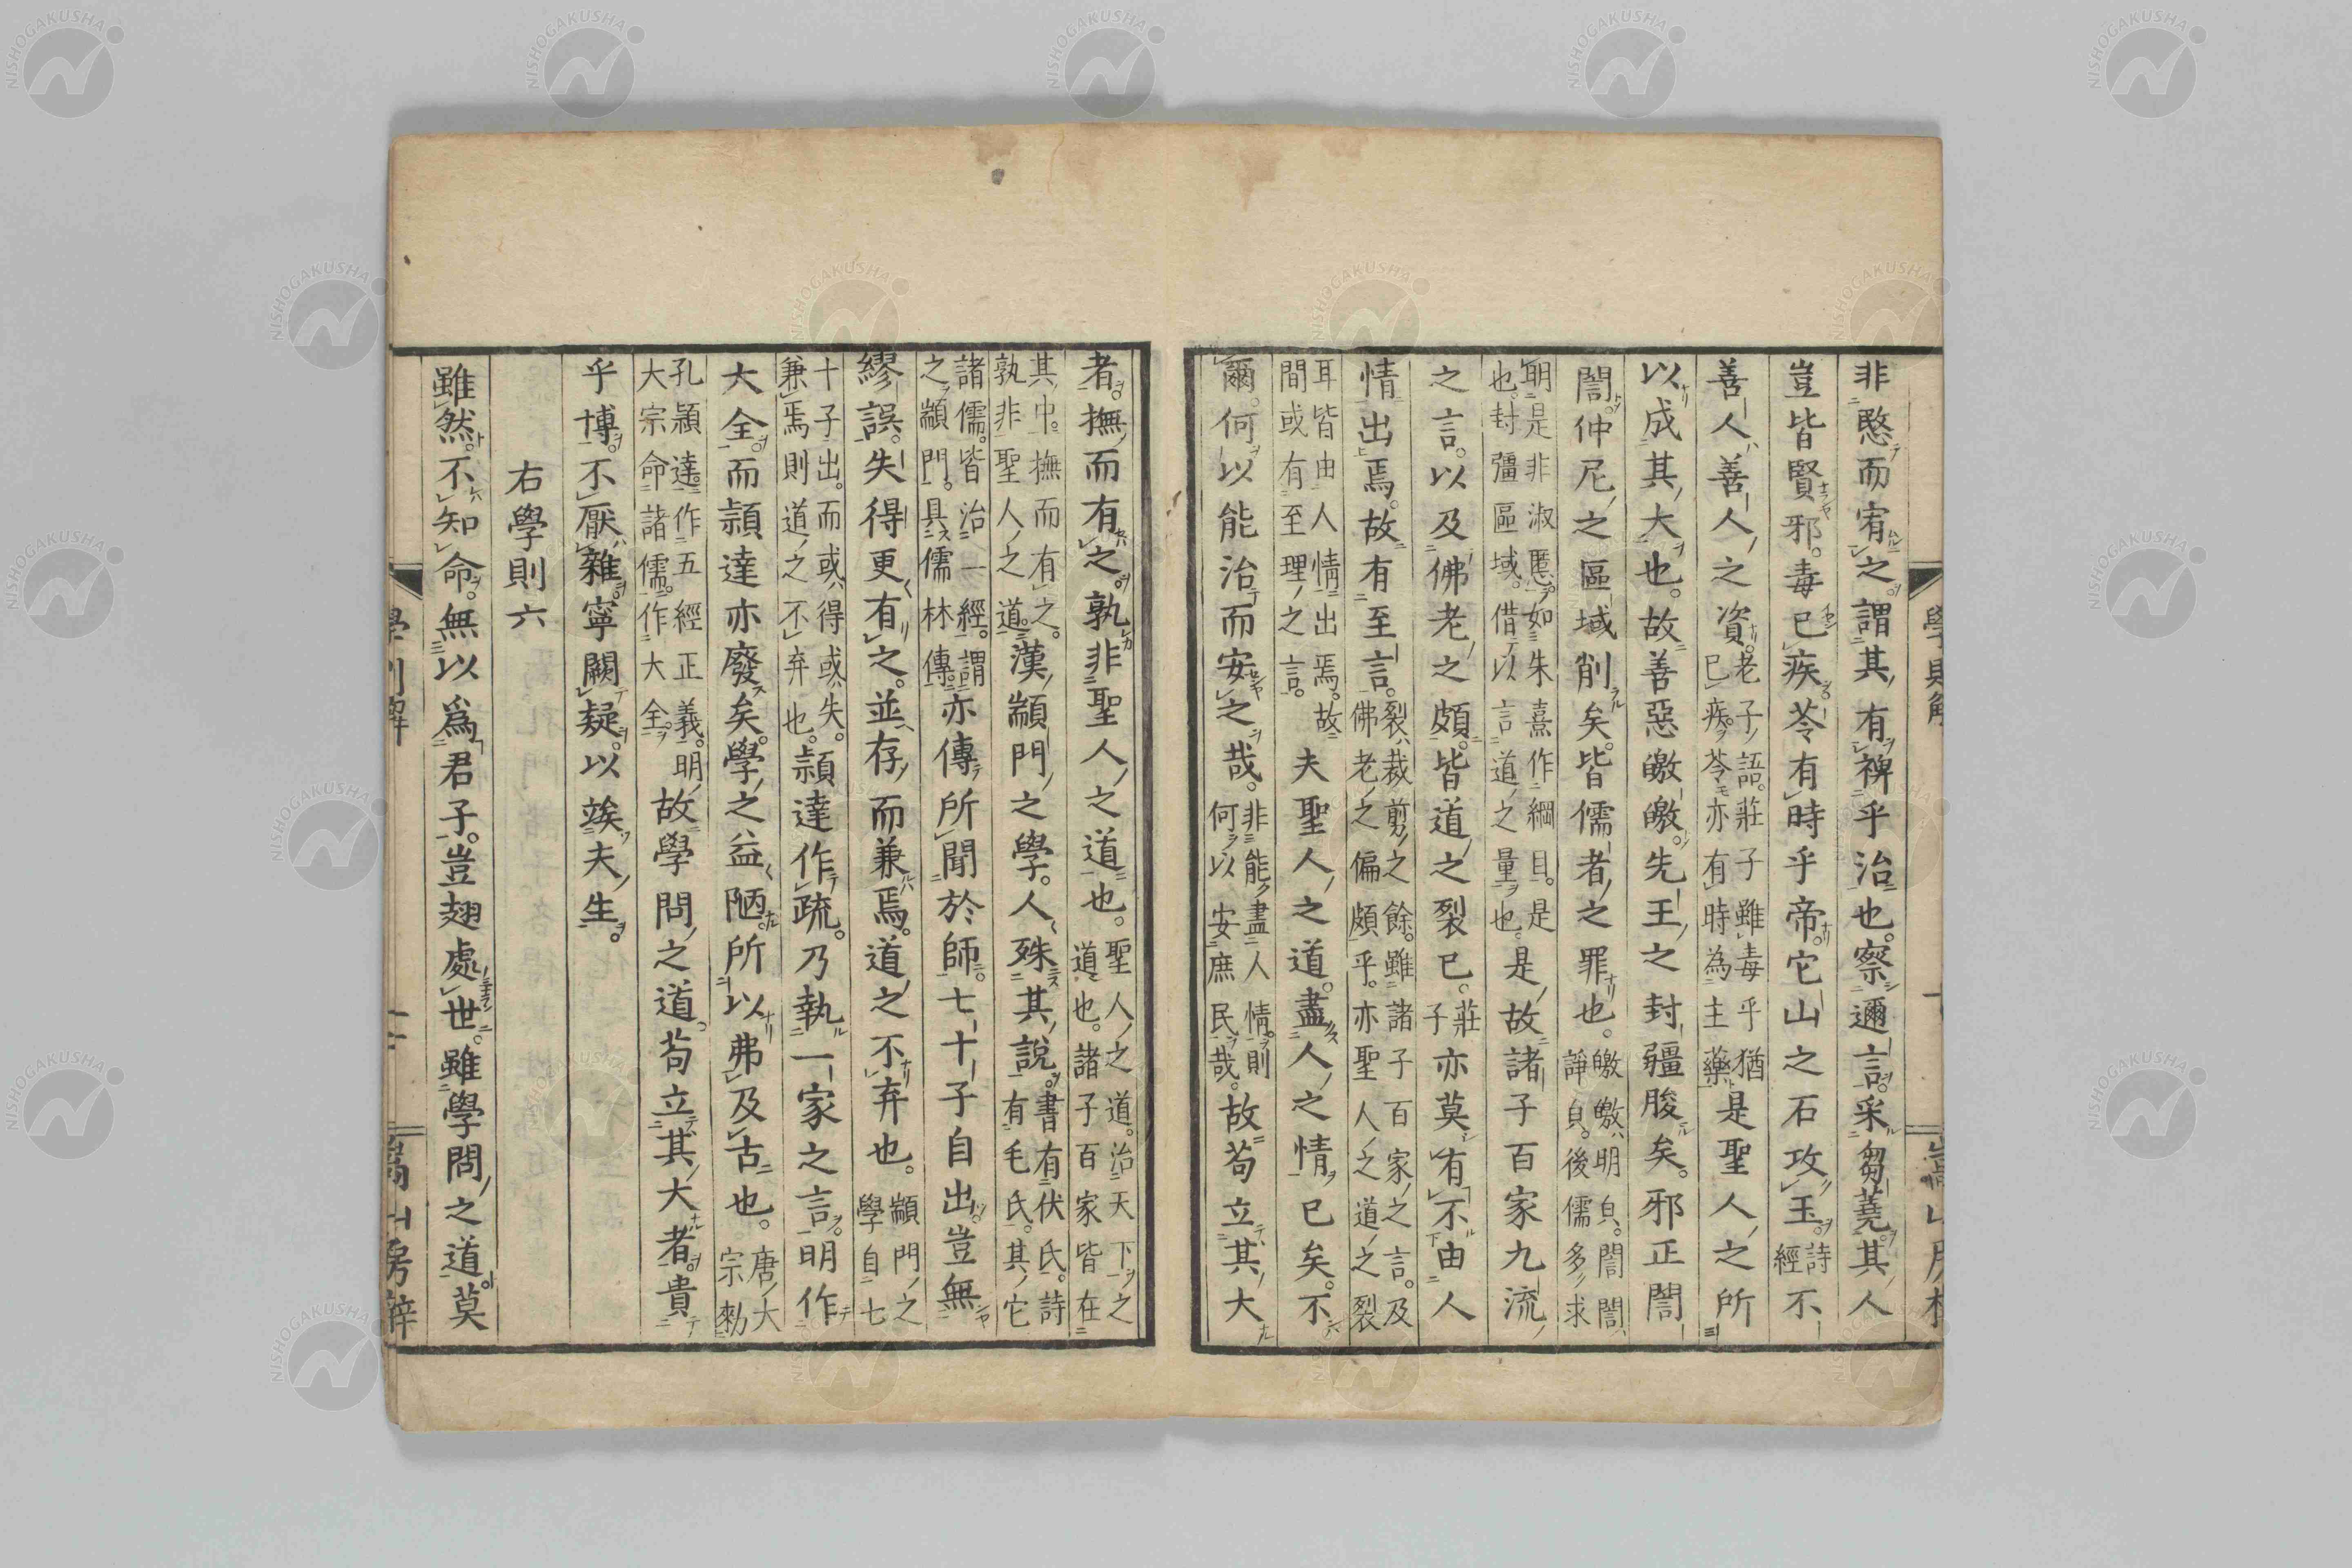 非愍而宥之。謂其有裨乎治也。察邇言。采芻蕘。其人
豈皆賢邪。毒已疾。苓有時乎帝。它山之石攻玉。詩經不
善人善人之資。老子語。莊子雖毒乎猶已疾。苓亦有時為主藥是聖人之所
以成其大也。故善惡皦皦。先王之封疆朘矣。邪正誾
誾。仲尼之區域削矣。皆儒者之罪也。皦皦明白。誾誾諍貞。後儒多求
明是非淑慝。如朱熹作綱目。是也。封彊區域。借以言道之量也。是故諸子百家九流
之言。以及佛老之頗。皆道之裂已。莊子亦莫有不由人
情出焉。故有至言。裂裁剪之餘。雖諸子百家之言。及佛老之偏頗乎。亦聖人之道之裂
耳皆由人情出焉。故間或有至理之言。夫聖人之道。盡人之情已矣。不
爾。何以能治而安之哉。非能盡人情。則何以安庶民哉。故苟立其大
者。撫而有之。孰非聖人之道也。聖人之道。治天下之道也。諸子百家皆在
其中。撫而有之。孰非聖人之道。漢顓門之學。人殊其說。書有伏氏。詩有毛氏。其它
諸儒。皆治一經。謂之顓門。具儒林傳。亦傳所聞於師。七十子自出。豈無
繆誤。失得更有之。並存而兼焉。道之不弃也。顓門之學自七
十子出。而或得或失。兼焉則道之不弃也。頴達作疏。乃執一家之言。明作
大全。而頴達亦廢矣。學之益陋。所以弗及古也。唐大宗勑
孔頴達。作五經正義。明大宗命諸儒。作大全。故學問之道。苟立其大者。貴
乎博。不厭雜。寧闕疑。以竢夫生。
右學則六
雖然。不知命。無以爲君子。豈翅處世。雖學問之道。莫